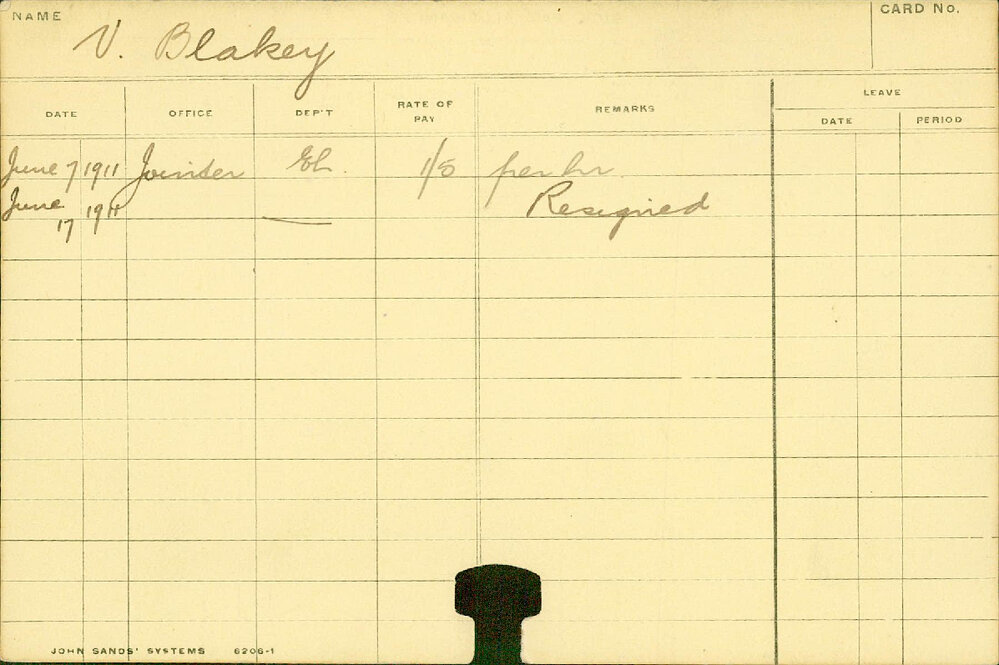 NAME
CARD NO.
V. Blakey
DATE OFFICE DEP'T RATE OF PAY REMARKS LEAVE
DATE PERIOD
June 7 1911 Jointer El. 1/5 per hr.
June 17 1911 Resigned
JOHN SANDS' SYSTEMS 6206-1